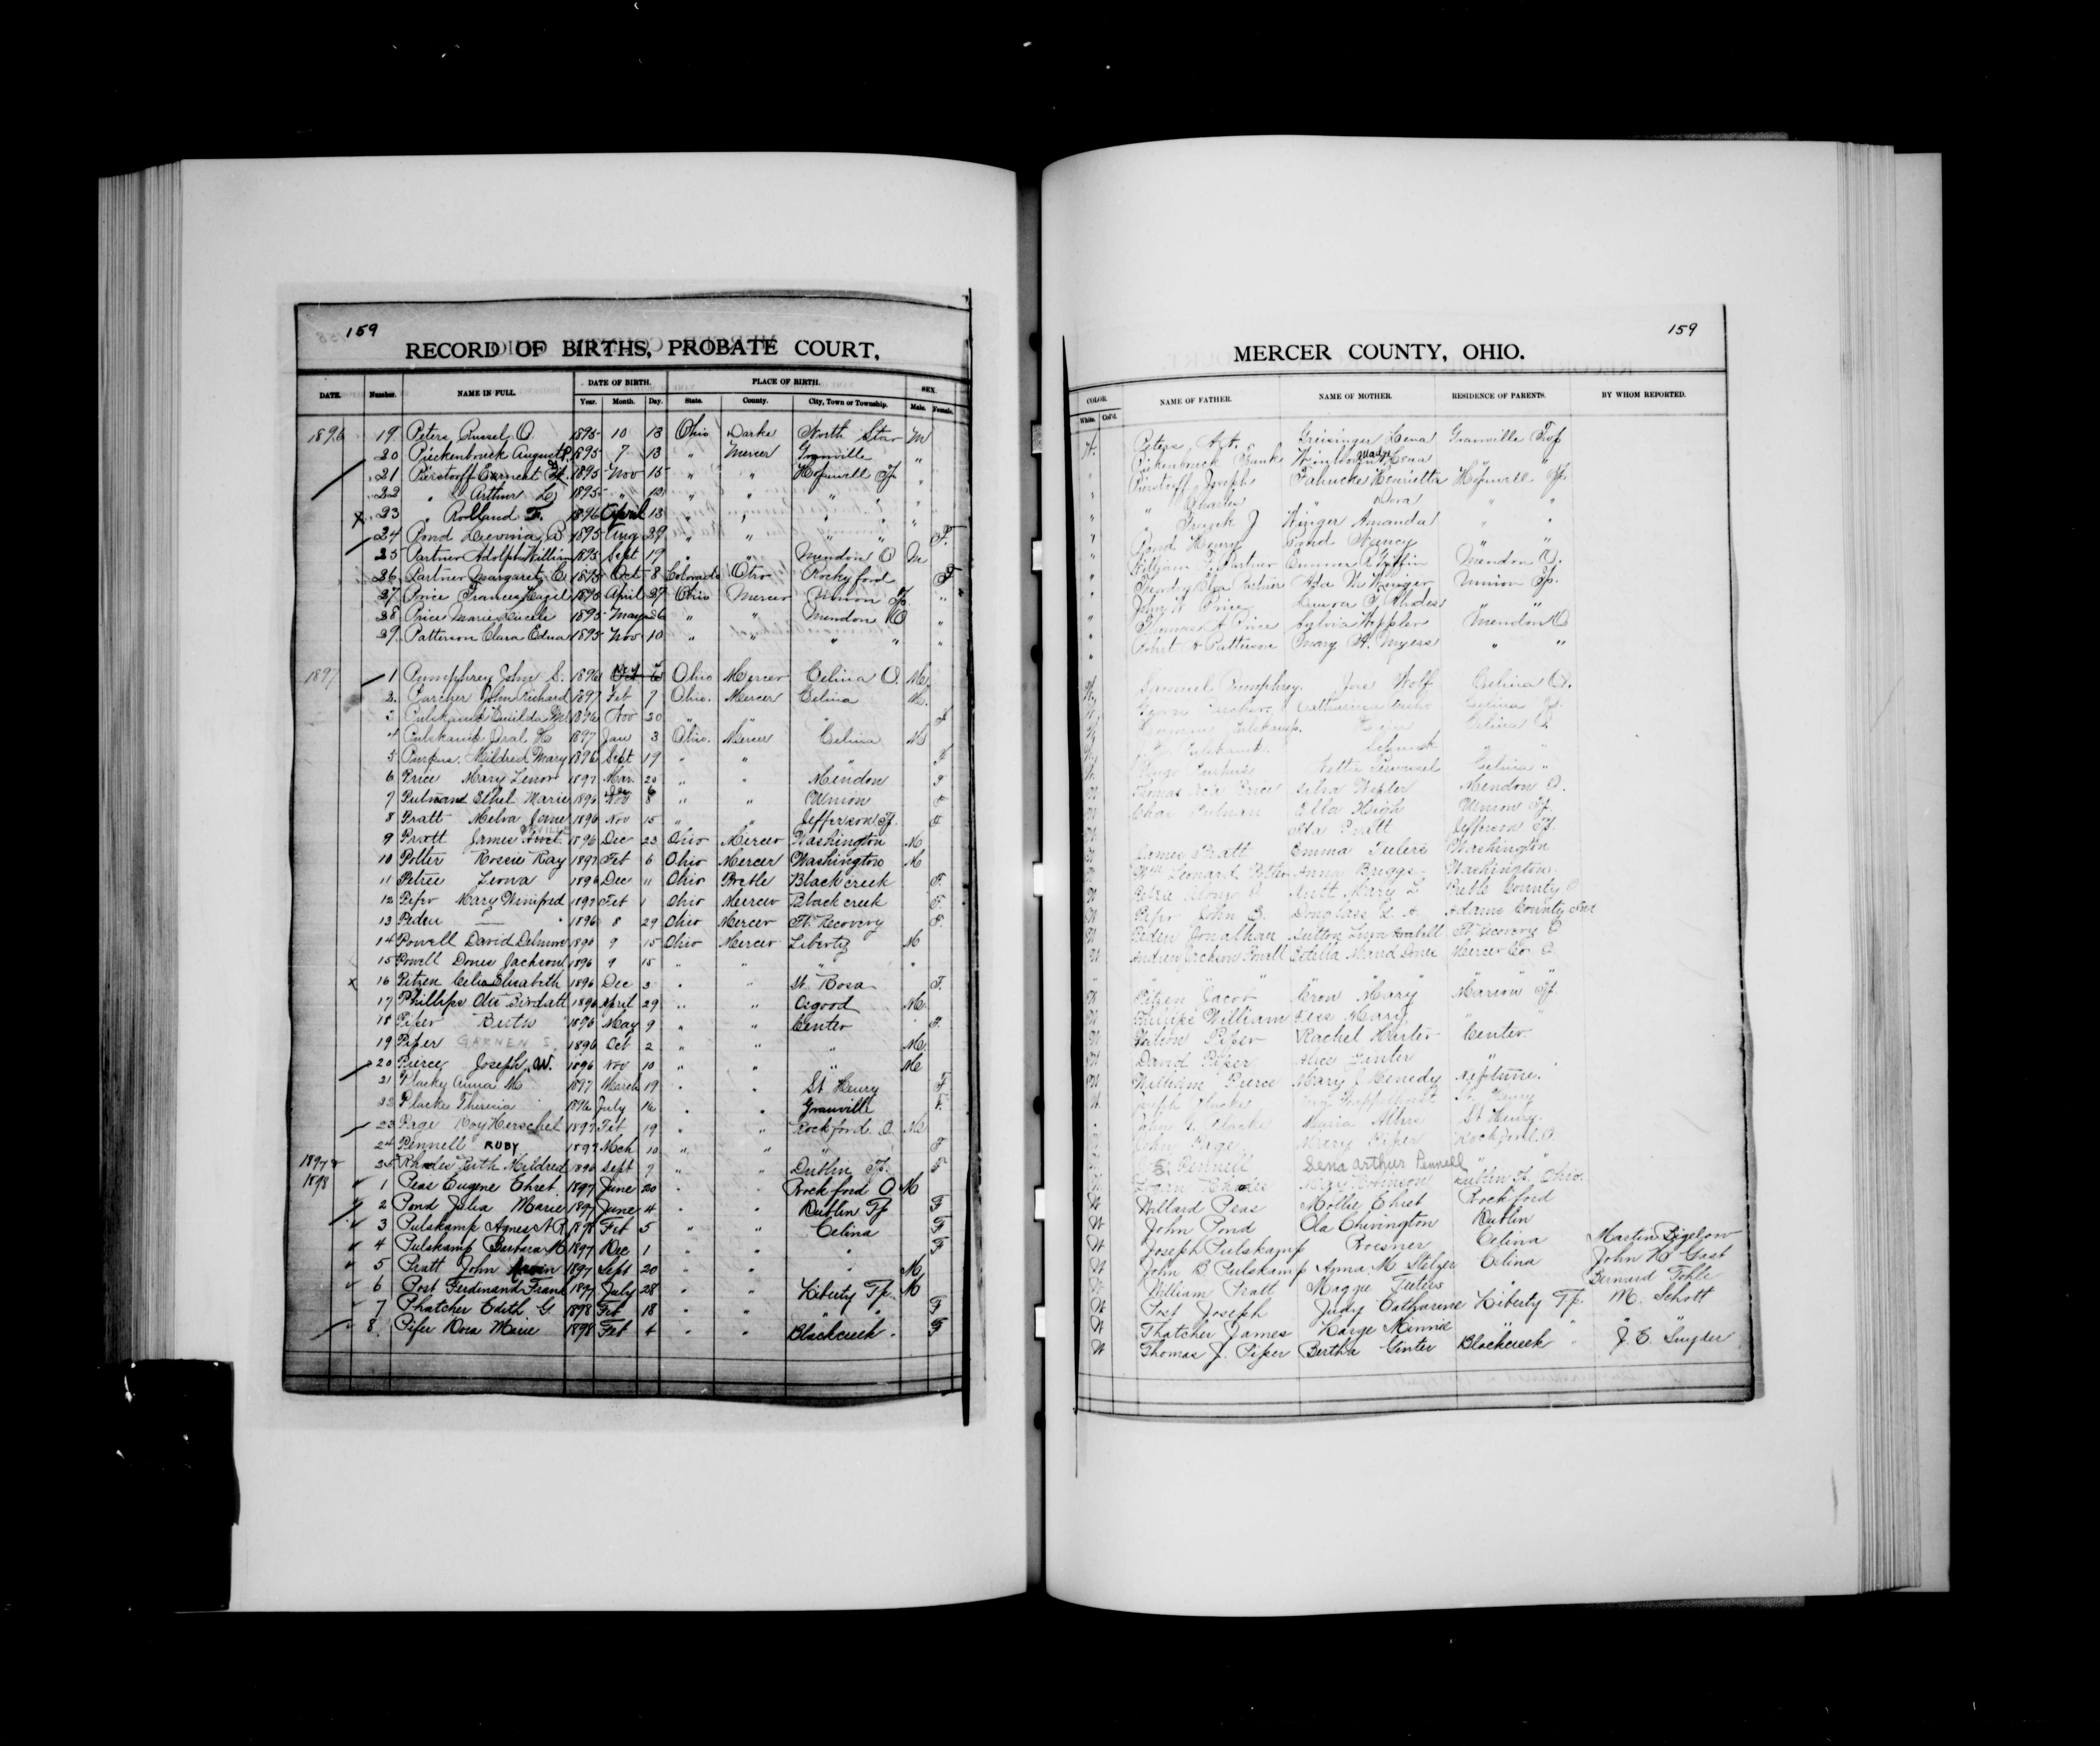 159
RECORD OF BIRTHS, PROBATE COURT,
DATE. Number. NAME IN FULL. DATE OF BIRTH. PLACE OF BIRTH. SEX.
Year. Month. Day. State. County. City, Town or Township. Male. Female.
1896 19 Peters Russel O. 1895 10 13 Ohio Darke North Star M
20 Pieckenbrock August 1895 7 13 " Mercer Granville "
21 Pierstorff Earnest 1895 Nov 15 " " Hopewell Tp "
22 " Arthur L 1895 " 12 " " " " "
x 23 " Rolland F. 1896 April 13 " " " " "
24 Pond Lewvina B 1895 Aug 29 " " " " F.
25 Partner Adolph William 1895 Sept 19 " " Mendon O M
26 Partner Margaret C 1895 Oct 8 Colorado Otro Rockyford F
27 Price Frances Hazel 1895 April 27 Ohio Mercer Union Tp. "
28 Price Marie Lucele 1895 May 26 " " Mendon O "
29 Patterson Clara Edna 1895 Nov 10 " " " " "
1897 1 Pumphrey John S. 1896 Oct 6 Ohio Mercer Celina O. M.
2 Parcher John Richard 1897 Feb 7 Ohio. Mercer Celina M.
3 Pulskamp Enilda M 1896 Nov 20 " " " F
4 Pulskamp Oral H 1897 Jan 3 Ohio. Mercer Celina M
5 Purpus. Mildred Mary 1896 Sept 19 " " " F
6 Price Mary Lenor 1897 Mar. 20 " " Mendon F
7 Putmant Ethel Marie 1896 Nov 8 " " Union F
8 Pratt Melva Jane 1896 Nov 15 " " Jefferson Tp. F
9 Pratt James 1896 Dec 23 Ohio Mercer Washington M
10 Potter Rossie Ray 1897 Feb 6 Ohio Mercer Washington M
11 Petree Leova 1896 Dec 11 Ohio Preble Blackcreek F.
12 Pifer Mary Winifred 1897 Feb 1 Ohio Mercer Blackcreek F.
13 Peden — 1896 8 29 Ohio Mercer Ft. Recovery F.
14 Powell David Delmer 1896 9 15 Ohio Mercer Liberty M
15 Powell Doner Jackson 1896 9 15 " " " "
x 16 Pitzen Celia Elisabeth 1896 Dec 3 " " St. Rosa F.
17 Phillips Otis Birdatt 1896 April 29 " " Osgood M.
18 Pifer Beth 1896 May 9 " " Center F.
19 Pifer GARNEN S. 1896 Oct 2 " " " M.
20 Pierce Joseph W. 1896 Nov 10 " " " M
21 Placky Anna M. 1897 March 19 " " St. Henry F
22 Placke Theresia 1896 July 16 " " Granville F.
23 Page Roy Herschel 1897 Feb 19 " " Rockford O. M
24 Pennell RUBY 1897 Mch 10 " " " F
1897 & 25 Rhodes Ruth Mildred 1896 Sept 7 " " Dublin Tp. F
1898 1 Peas Eugene Ehret 1897 June 20 " " Rockford O M
2 Pond Julia Marie 1897 June 4 " " Dublin Tp F
3 Pulskamp Agnes N R 1898 Feb 5 " " Celina F
4 Pulskamp Barbara M 1897 Dec 1 " " " F
5 Pratt John 1897 Sept 20 " " " M
6 Post Ferdinand Frank 1897 July 28 " " Liberty Tp. M
7 Phatcher Edith G 1898 Feb 18 " " " " F
8. Pifer Dora Marie 1898 Feb 4 " " Blackcreek. F
159
MERCER COUNTY, OHIO.
COLOR. NAME OF FATHER. NAME OF MOTHER. RESIDENCE OF PARENTS. BY WHOM REPORTED.
White. Col'd.
Peters Greisinger Lena Granville Twp
Pieckenbrock Franke Lena " "
" Pierstorff Joseph Fahncke Henrietta Hopewell Tp.
" " Charles " Dora " "
" " J Winger Amanda " "
" Pond Henry Pond Nancy " "
" William F. Partner Mendon O.
" Partner Ada M Winger Union Tp.
" John W Price Rhodes " "
" Thomas A Price Sylvia Heppler Mendon O
" Patterson Mary A. Myers " "
Samuel Pumphrey. Jane Wolf Celina O.
Catharina Celina
Pulskamp. Celina O.
Pulskamp. Schunck " "
Hettie Celina "
Thomas Price Wepler Mendon O.
Chas Putman Alla High Union Tp.
W Eta Pratt Jefferson Tp.
James Pratt Emma Teeters Washington
Wm Leonard Potter Anna Briggs Washington
W Petrie Alonzo Mary L Preble County O
W Pifer John S. Douglass L A. Adams County Ind
W Peden Jonathan Sutton Ft. Recovery O
W Andrew Jackson Powell Estella Maud Doner Mercer Co. O.
" " " " " " " " "
W Pitzen Jacob Kron Mary Marion Tp.
W Phillips William Hess Mary " "
W Pifer Rachel Harter Center
W David Pifer Alice Ginter " "
W William Pierce Mary J Kenedy Neptune.
W Joseph Placke St. Henry
Placke Maria Albers St. Henry
John Page Mary Pifer Rockford O.
Pennell Dena Arthur Pennell " "
Rhodes Mary Robinson Dublin Tp. Ohio.
W Willard Peas Mollie Ehret Rockford
W John Pond Ola Chivington Dublin
W Joseph Pulskamp Roesner Celina Martin Bigelow
W John B Pulskamp Anna M Stelzer Celina John H Gast
W William Pratt Maggie Teeters " Bernard Tohle
W Post Joseph Judy Catharine Liberty Tp. M. Schott
W Thatcher James Karge Minnie " " " "
W Thomas J. Pifer Bertha Ginter Blackcreek " J. E. Snyder